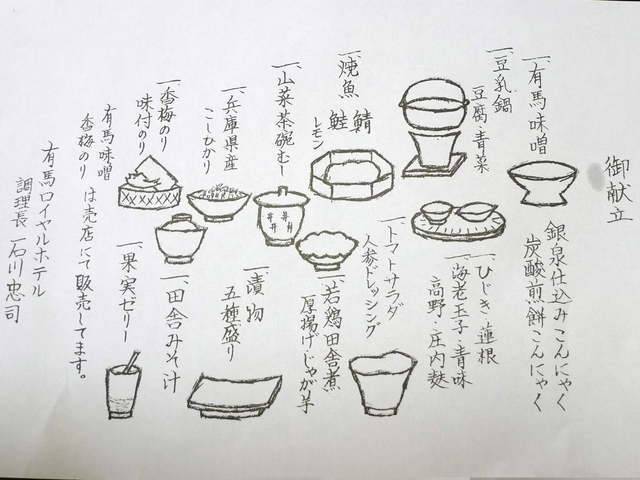 御献立
一、有馬味噌
銀泉仕込みこんにゃく
炭酸煎餅こんにゃく
一、豆乳鍋
豆腐・青菜
一、ひじき・蓮根
海老玉子・青味
高野・庄内麩
一、焼魚
鮭 鯖
レモン
一、トマトサラダ
人参ドレッシング
一、山菜茶碗むし
一、若鶏田舎煮
厚揚げじゃが芋
一、兵庫県産
こしひかり
一、漬物
五種盛り
一、香梅のり
味付のり
一、田舎みそ汁
一、果実ゼリー
有馬味噌
香梅のり は売店にて販売してます。
有馬ロイヤルホテル
調理長 石川忠司